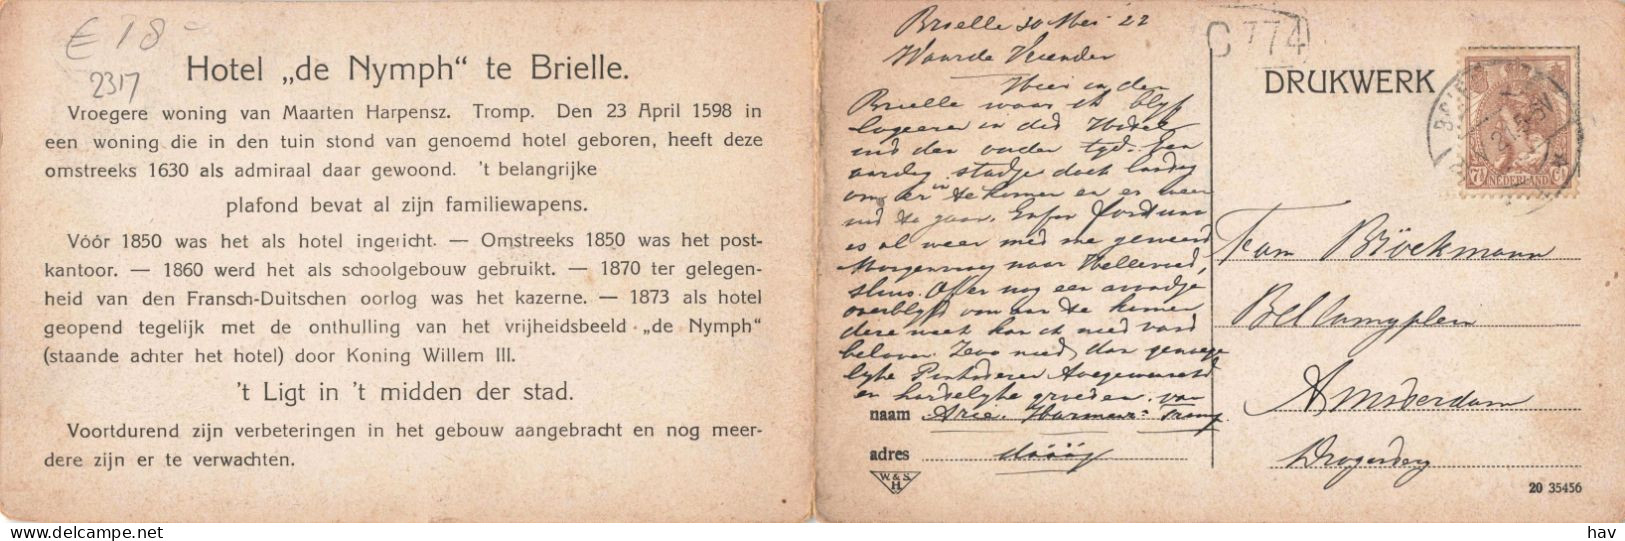 € 18 -
2317
Hotel „de Nymph“ te Brielle.
Vroegere woning van Maarten Harpensz. Tromp. Den 23 April 1598 in
een woning die in den tuin stond van genoemd hotel geboren, heeft deze
omstreeks 1630 als admiraal daar gewoond. 't belangrijke
plafond bevat al zijn familiewapens.
Vóór 1850 was het als hotel ingericht. — Omstreeks 1850 was het post-
kantoor. — 1860 werd het als schoolgebouw gebruikt. — 1870 ter gelegen-
heid van den Fransch-Duitschen oorlog was het kazerne. — 1873 als hotel
geopend tegelijk met de onthulling van het vrijheidsbeeld „de Nymph“
(staande achter het hotel) door Koning Willem III.
't Ligt in 't midden der stad.
Voortdurend zijn verbeteringen in het gebouw aangebracht en nog meer-
dere zijn er te verwachten.
Brielle 30 Mei 22
Waarde Vrienden
Hier in den
Brielle waar ik blijf
logeeren in dit Hotel
uit den ouden tijd. Een
aardig stadje doch lastig
om er in te komen en er weer
uit te gaan. Enfin
is al weer met me geweest
Morgenvroeg naar Hellevoet,
sluis. Of er nog een avondje
overblijft om aan te komen
deze week kan ik niet vast
beloven. Zoo niet dan genoege
lijke Pinksteren toegewenscht
en hartelijke groeten van
naam Arie. Harmen = Tromp
adres dááág
W. & S.
H.
C 774
DRUKWERK
7½ NEDERLAND Ct
Fam Bröckmann
Bellamyplein
Amsterdam
Drogerij
20 35456
hav